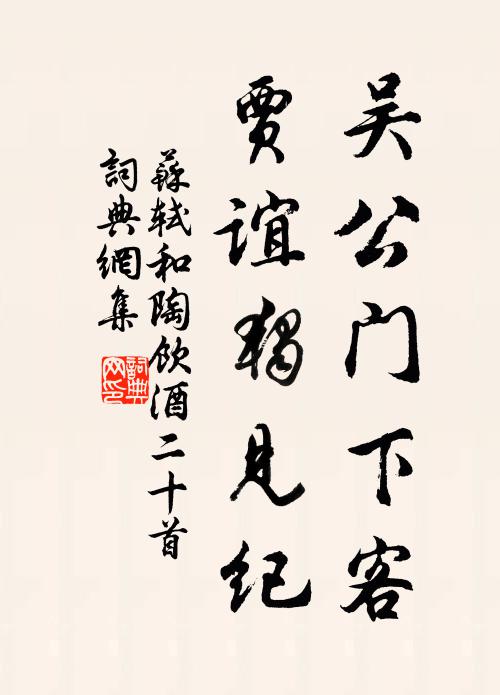 吴公门下客
贾谊独见纪
蘇軾和陶飲酒二十首
詞典網集
詞典网印